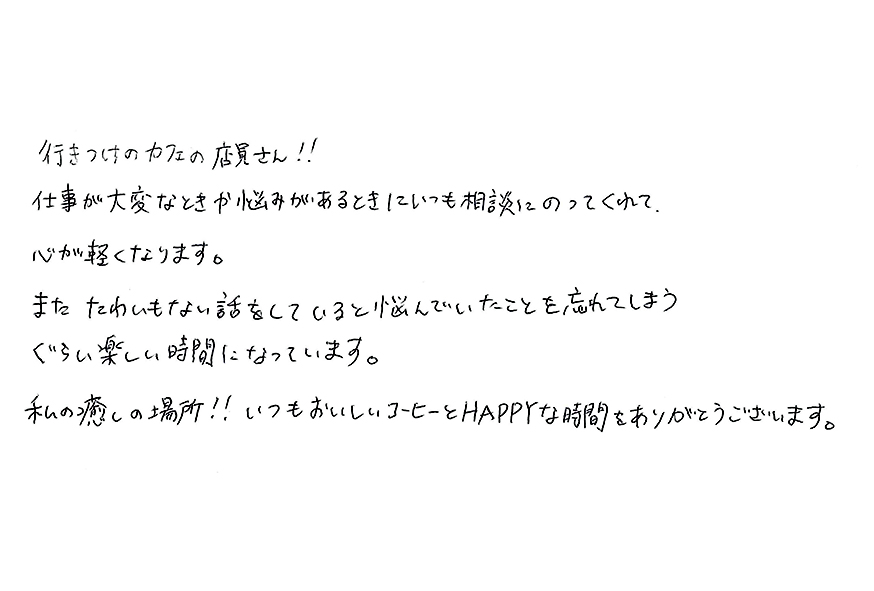 行きつけのカフェの店員さん!!
仕事が大変なときや悩みがあるときにいつも相談にのってくれて、
心が軽くなります。
また たわいもない話をしていると悩んでいたことを忘れてしまう
ぐらい楽しい時間になっています。
私の癒しの場所!! いつもおいしいコーヒーとHAPPYな時間をありがとうございます。